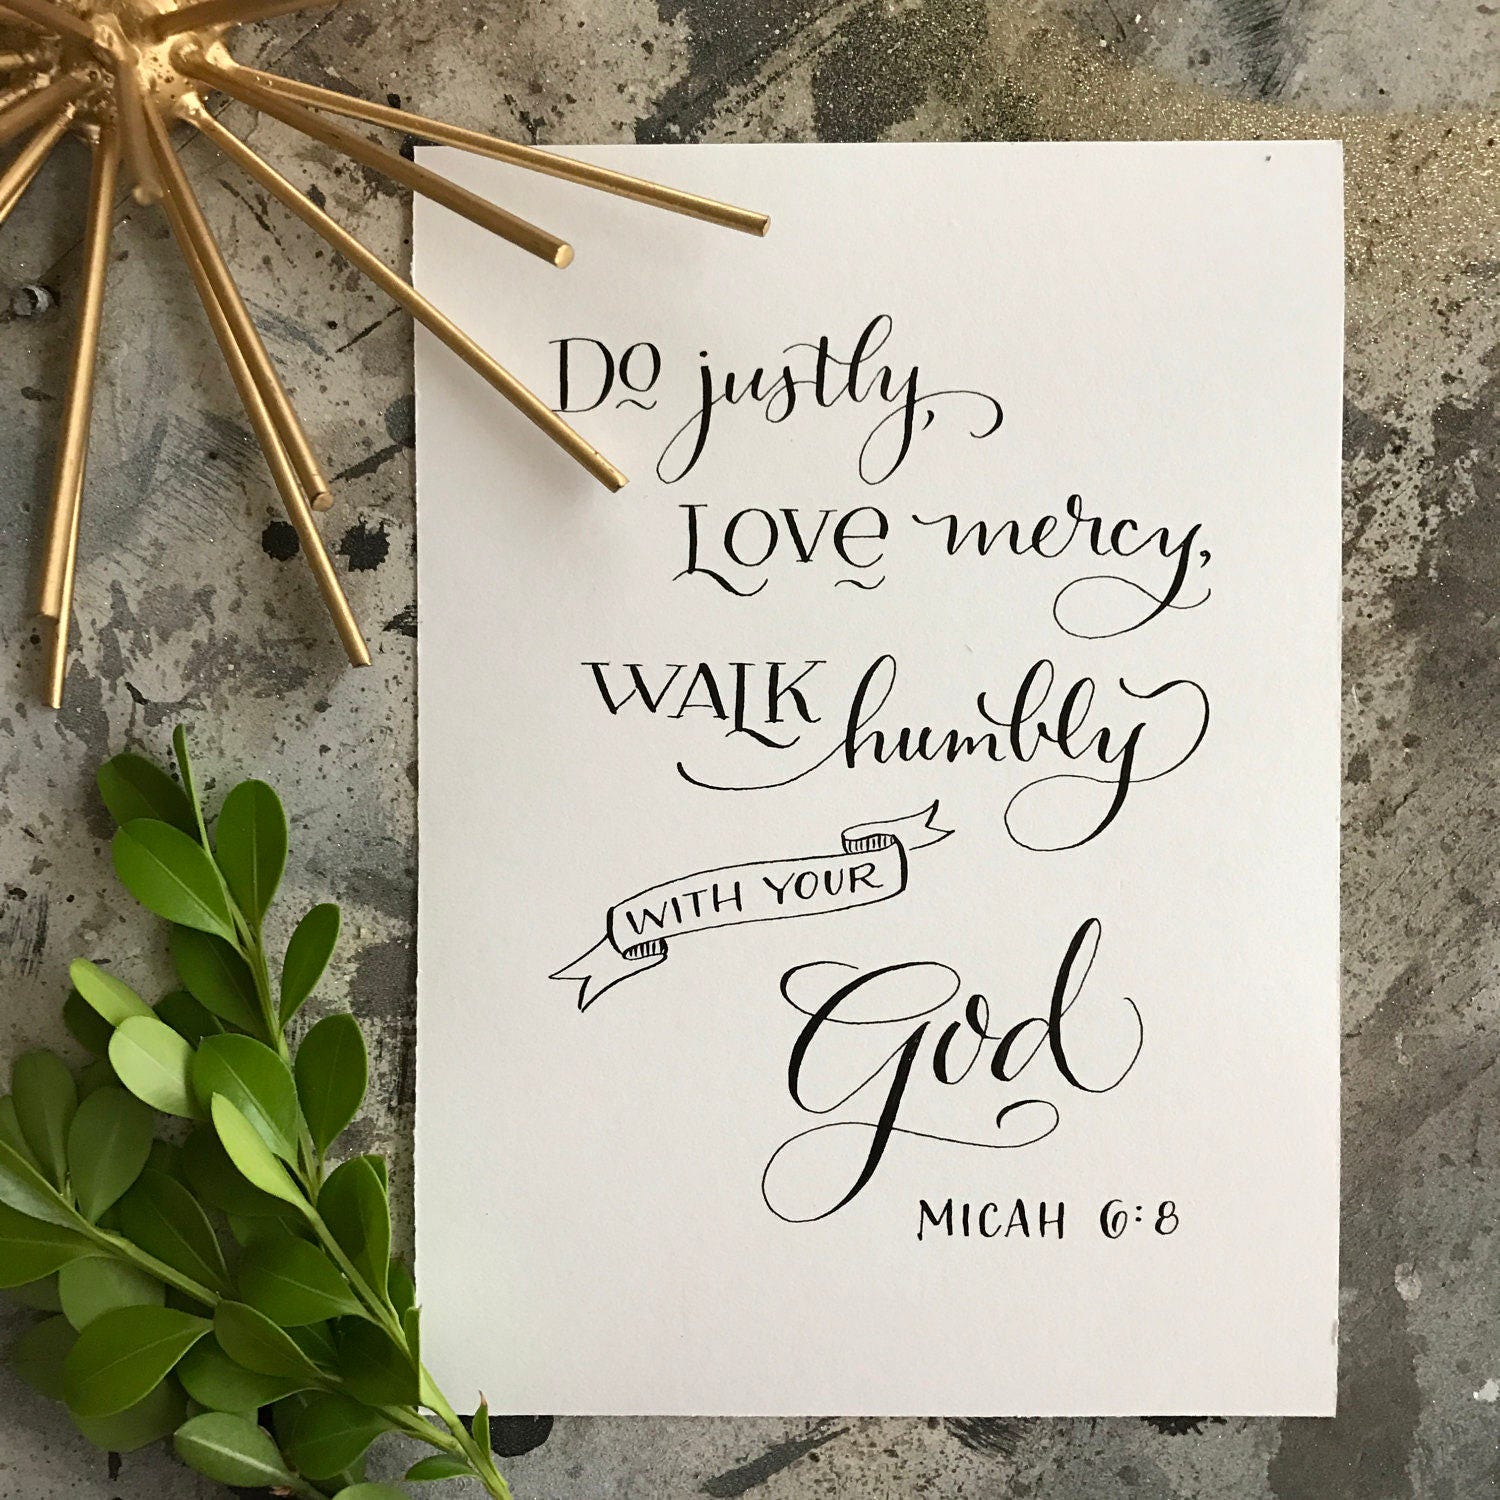 Do justly,
LOVe mercy,
WALK humbly
WITH YOUR
God
MICAH 6:8